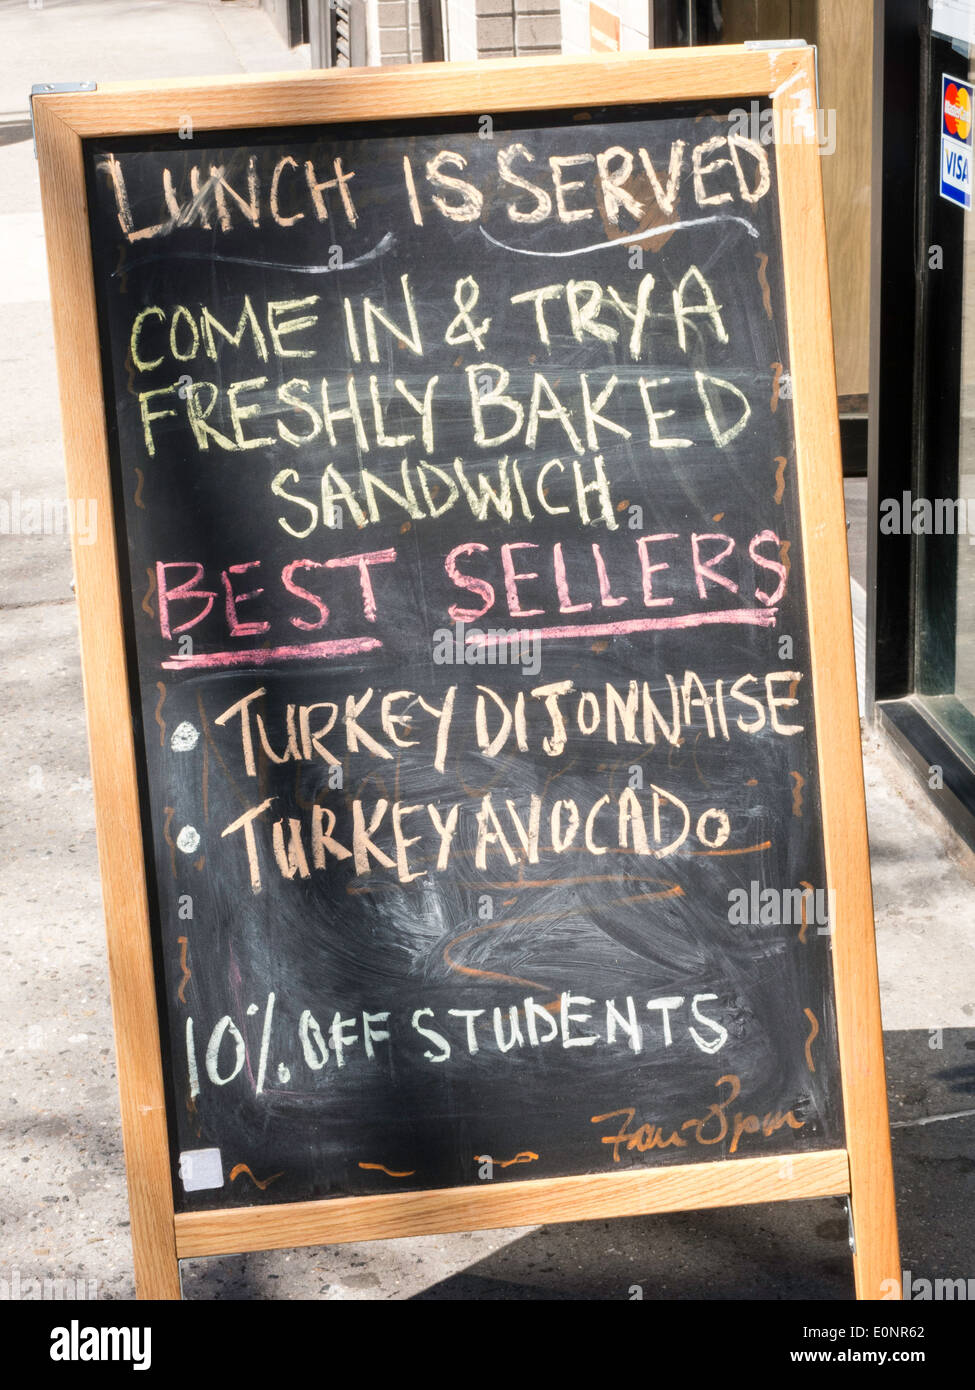 LUNCH IS SERVED
COME IN & TRY A
FRESHLY BAKED
SANDWICH
BEST SELLERS
• TURKEY DIJONNAISE
• TURKEY AVOCADO
10% OFF STUDENTS
7am-8pm
MasterCard
VISA
alamy
a
alamy stock photo
E0NR62
www.alamy.com